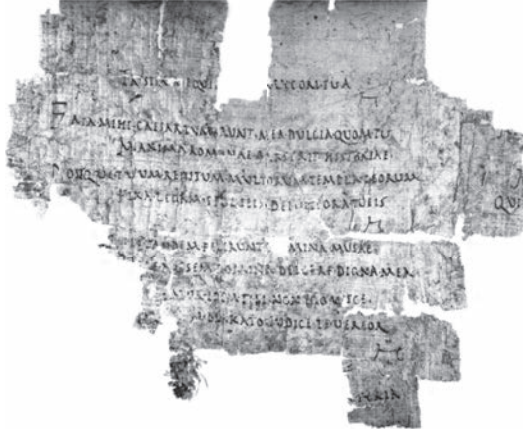 LYCORI TVA
FATA MIHI CAESAR TVM ERVNT MEA DVLCIA QVOM TV
MAXIMA ROMANAE PARS ERIT HISTORIAE
POSTQVE TVVM REDITVM MVLTORVM TEMPLA DEORVM
FIXA LEGAM SPOLIEIS DEIVITIORA TVEIS
QVI
TANDEM FECERVNT CARMINA MVSAE
POSSEM DOMINA DEICERE DIGNA MEA
ATVR IDEM TIBI NON EGO VISCE
KATO IVDICE TE VEREOR
TYRIA